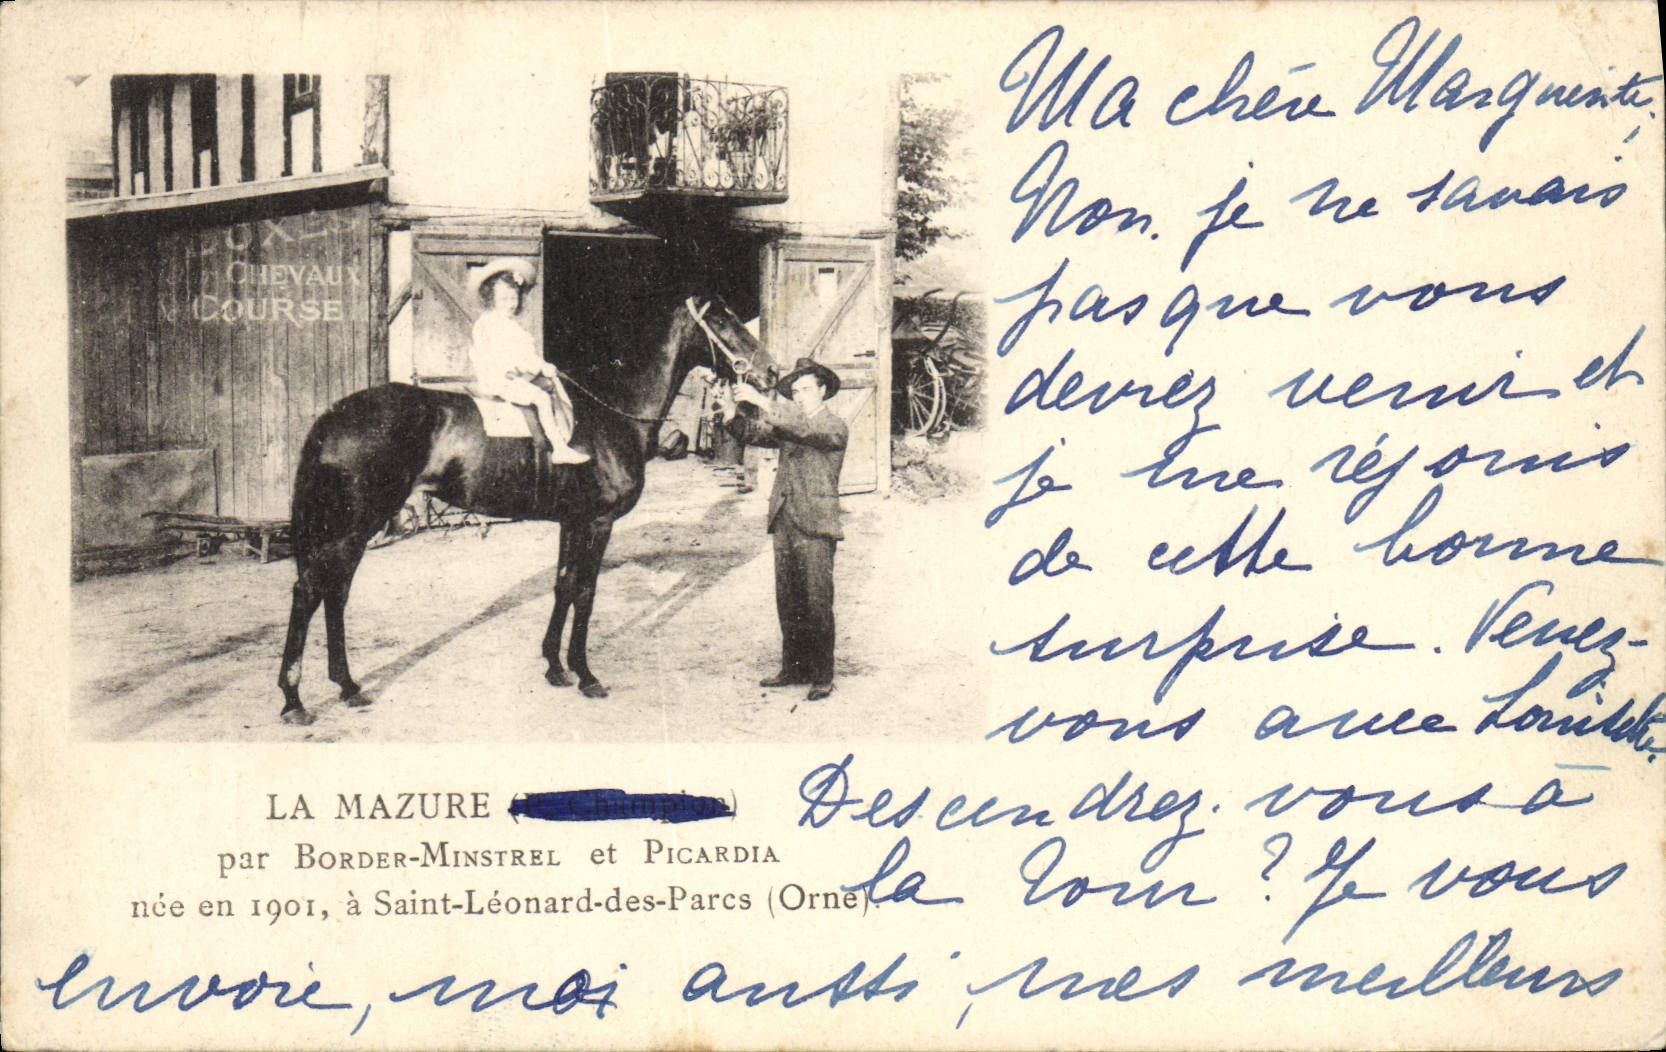 CHEVAUX
COURSE
LA MAZURE
par BORDER-MINSTREL et PICARDIA
née en 1901, à Saint-Léonard-des-Parcs (Orne).
Ma chère Marguerite,
Non, je ne savais
pas que vous
devrez venir et
je me réjouis
de cette bonne
surprise. Venez-
vous avec
Descendrez-vous à
la Tour ? Je vous
envoie, moi aussi, mes meilleurs